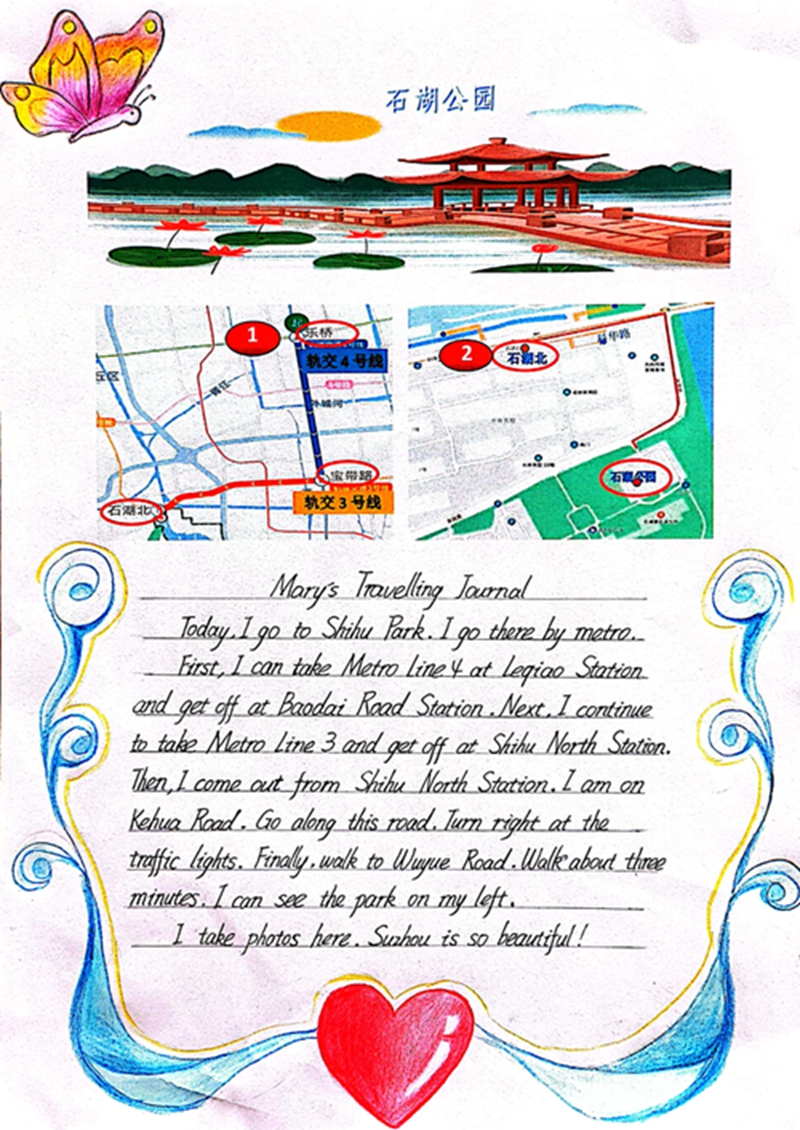 石湖公园
1
乐桥
轨交4号线
外城河
宝带路
轨交3号线
石湖北
2
石湖北
石湖公园
Mary's Travelling Journal
Today, I go to Shihu Park. I go there by metro.
First, I can take Metro Line 4 at Leqiao Station
and get off at Baodai Road Station. Next, I continue
to take Metro Line 3 and get off at Shihu North Station.
Then, I come out from Shihu North Station. I am on
Kehua Road. Go along this road. Turn right at the
traffic lights. Finally, walk to Wuyue Road. Walk about three
minutes. I can see the park on my left.
I take photos here. Suzhou is so beautiful!